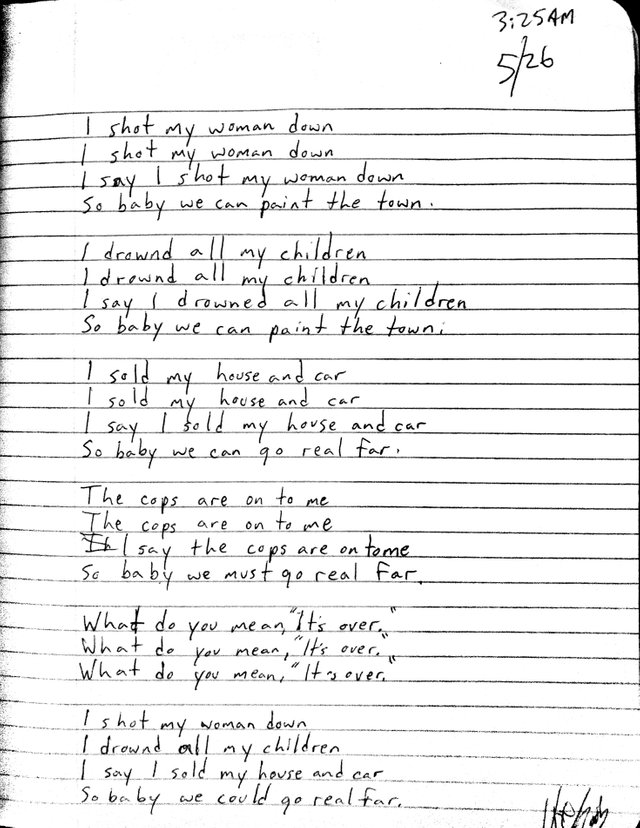 3:25AM
5/26
I shot my woman down
I shot my woman down
I say I shot my woman down
So baby we can paint the town.
I drownd all my children
I drownd all my children
I say I drowned all my children
So baby we can paint the town.
I sold my house and car
I sold my house and car
I say I sold my house and car
So baby we can go real far.
The cops are on to me
The cops are on to me
I say the cops are on to me
So baby we must go real far.
What do you mean, "It's over."
What do you mean, "It's over."
What do you mean, "It's over."
I shot my woman down
I drownd all my children
I say I sold my house and car
So baby we could go real far.